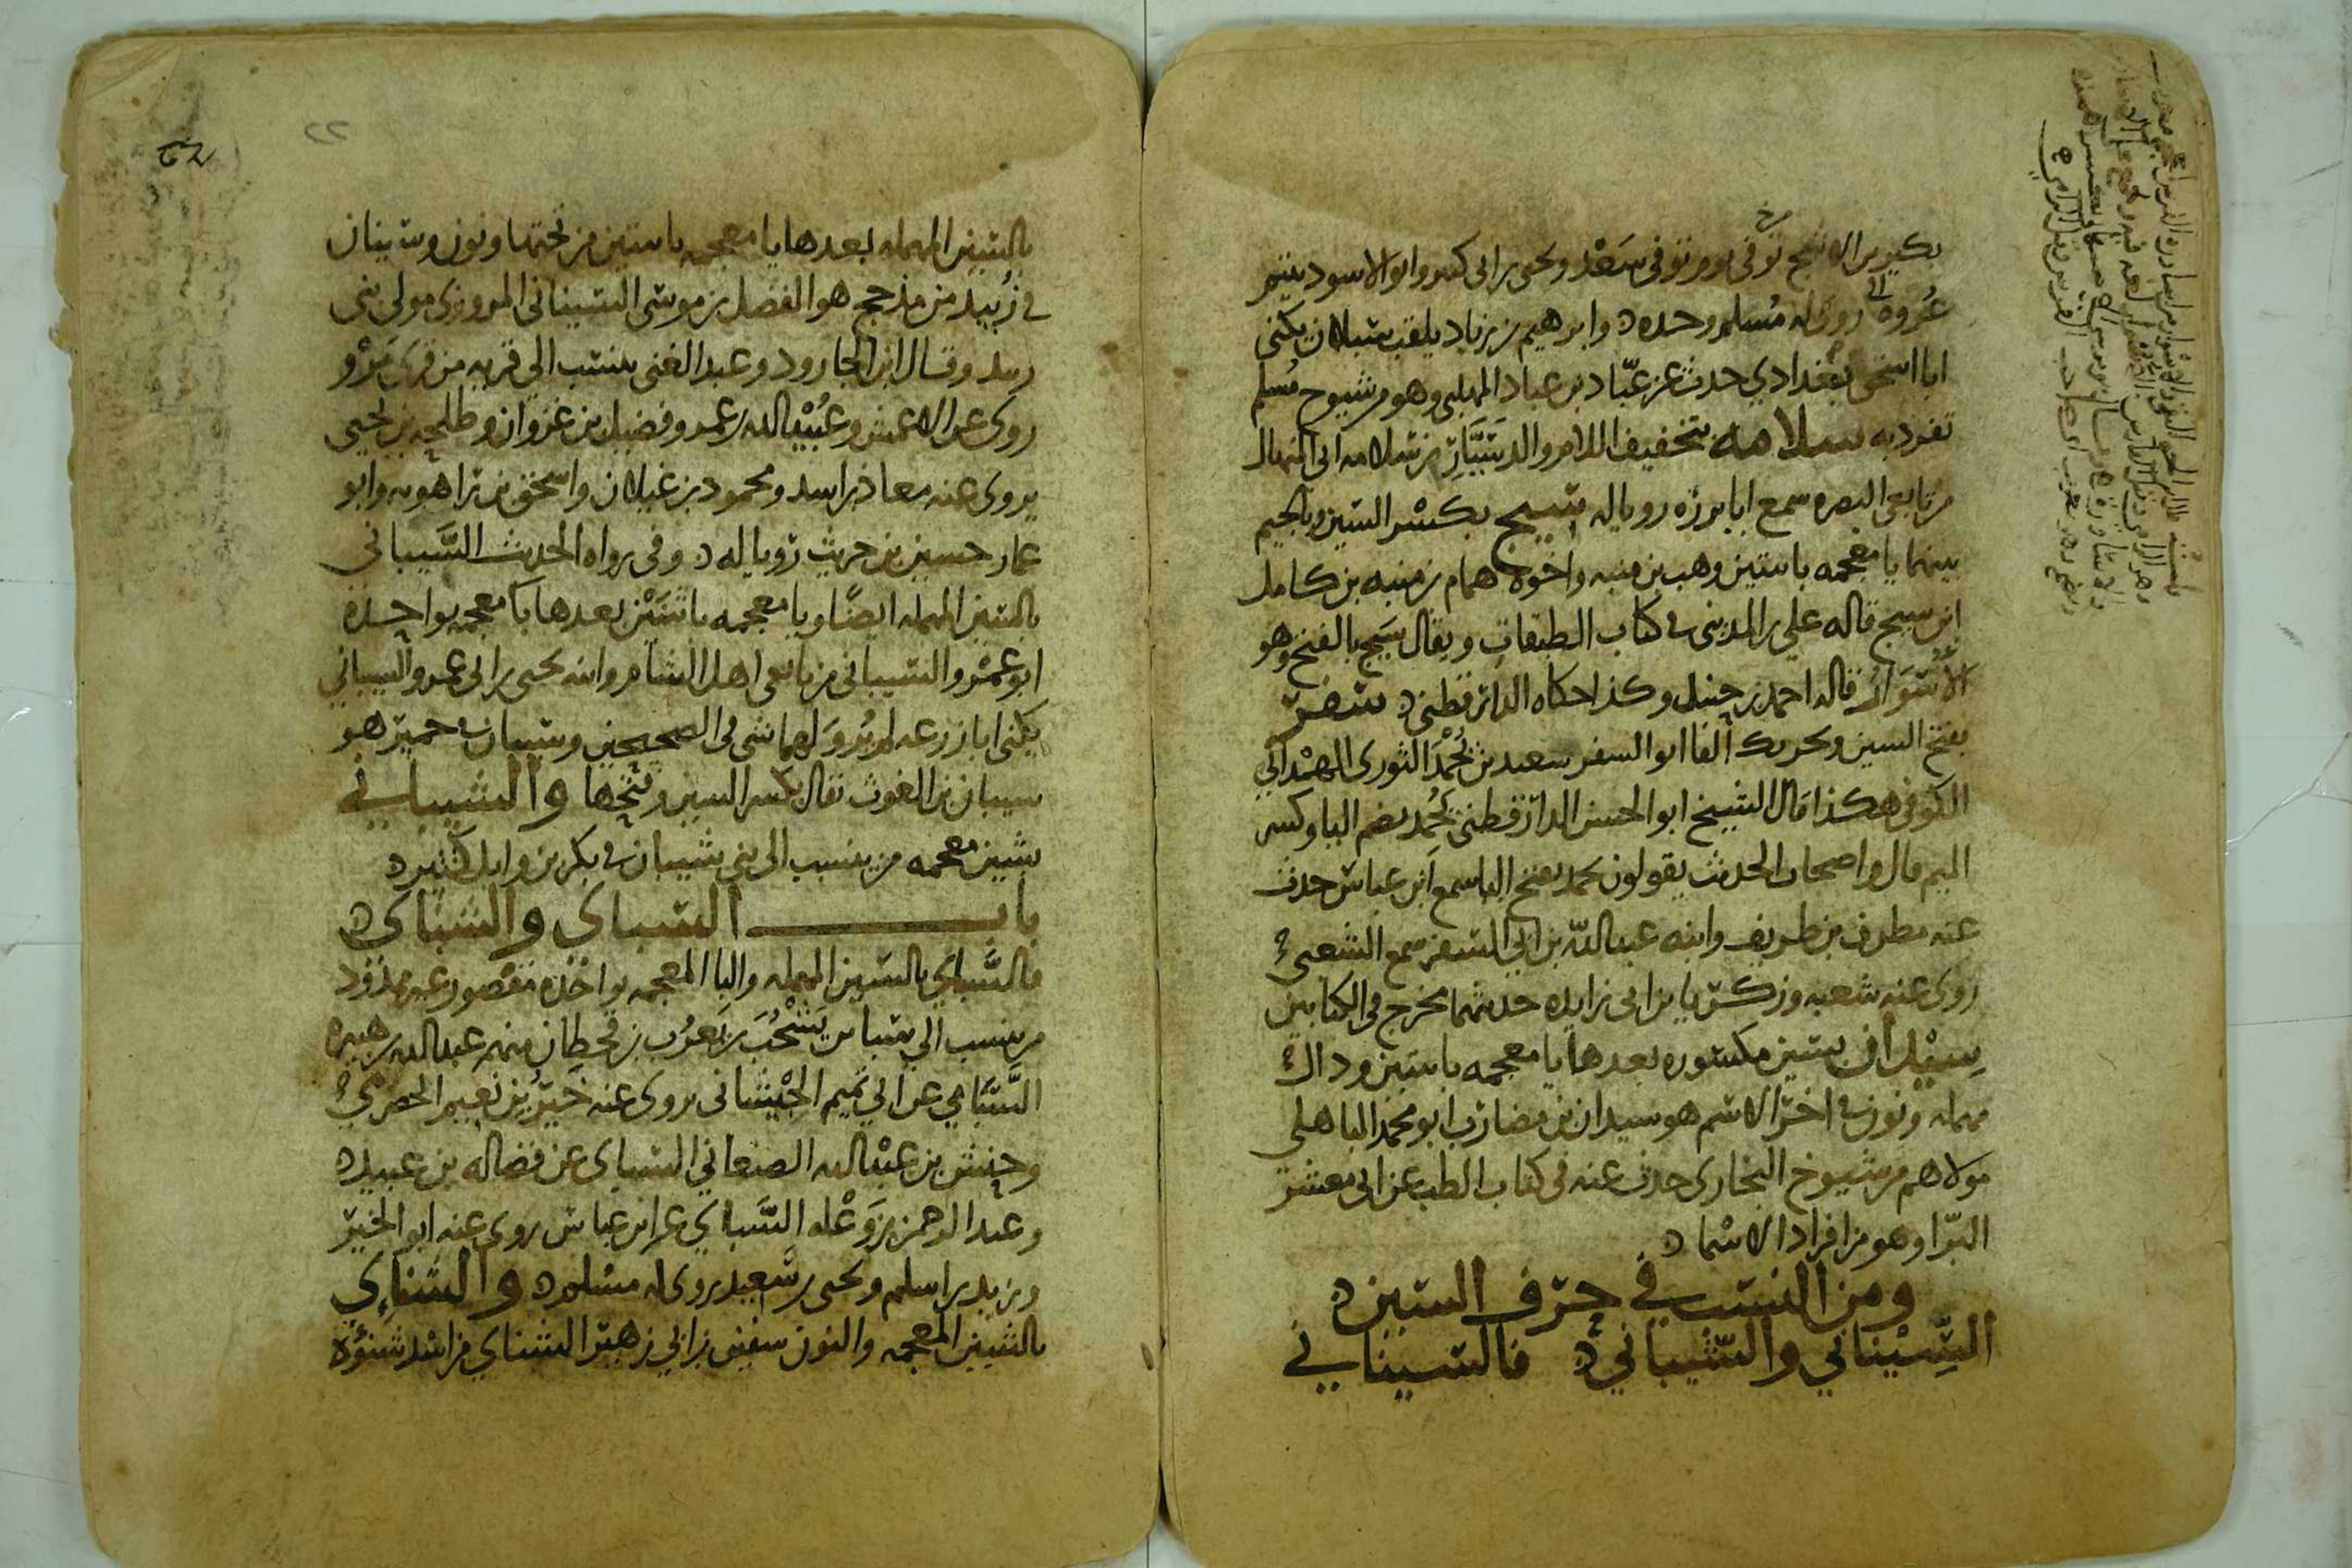 بكير بن الاشج توفى توفى سعد ويحيى بن ابى كثير وابو الاسود يتيم
عروة روى له مسلم وحده وابرهيم بن زياد يلقب سبلان يكنى
ابا اسحق بغدادي حدث عن عبّاد بن عباد المهلبي وهو من شيوخ مسلم
تفرد به سلامه بتخفيف اللام والد سَيَّار بن سلامه ابى المنهال
من تابعى البصره سمع ابا برزه رويا له سيج بكسر السين وبالجيم
بينهما يا معجمه باثنتين وهب بن منبه واخوه همام بن منبه بن كامل
ابن سيج قاله علي بن المدينى فى كتاب الطبقات ويقال سَيج بالفتح وهو
الأُسْوَار قاله احمد بن حنبل وكذا حكاه الدارقطنى سفر
بفتح السين وتحريك الفا ابو السفر سعيد بن يُحْمَد الثورى الهمْداني
الكوفى هكذا قال الشيخ ابو الحسن الدارقطنى يُحْمِد بضم اليا وكسر
الميم قال واصحاب الحديث يقولون يحمد بفتح اليا سمع ابن عباس حدث
عنه مطرف بن طريف وابنه عبد اللّه بن ابي السفر سمع الشعبى
روى عنه شعبه وزكريا بن ابى زايده حديثهما مخرج فى الكتابين
سِيْدان بسين مكسوره بعدها يا معجمه باثنتين ودال
مهمله ونون فى اخر الاسم هو سيدان بن مضارب ابو محمد الباهلى
مولاهم من شيوخ البخارى حدث عنه فى كتاب الطب عن ابى معشر
البرّا وهو من افراد الاسما
ومن النسب في حرف السين
السِّيْناني والسَّيْباني فالسيناني
بالسين المهمله بعدها يا معجمه باثنتين من تحتها ونون وسينان
فى زُبيد من مذحج هو الفضل بن موسى السينانى المروزى مولى بنى
زبيد وقال ابن الجارود وعبد الغنى ينسب الي قريه من قرى مَرْو
روى عن الاعمش وعُبَيْد الله بن عمر وفضيل بن غزوان وطلحه بن يحيى
يروى عنه معاذ بن اسد ومحمود بن غيلان واسحق بن راهويه وابو
عمار حسين بن حريث رويا له وفى رواه الحديث السَّيبانى
بالسين المهمله ايضًا ويا معجمه باثنَتَيْن بعدها با معجمه بواحِده
ابو عَمْرو السيبانى من تابعى اهل الشام وابنه يحيى بن ابى عمرو السيباني
يكنى ابا زرعه لم يُروَ لهما شى فى الصحيحين وسيبان فى حمير هو
سيبان بن الغوث يقال بكسر السين وفتحها والشيباني
بشين معجمه من ينسب الى بني شيبان فى بكر بن وايل كثير
باب السباى والشناى
فالسَّبَاي بالسين المهمله والبا المعجمه بواحده مقصور غير ممدود
من ينسب الي سبا بن يَشْحُبَ بن يَعرُب بن قحطان منهم عبد الله بن هبيره
السَّبَاءِي عن ابي تميم الجَيْشانى يروى عنه خَير بن نعيم الحضرمي
وحنش بن عبد الله الصنعاني السباى عن فضاله بن عبيد
وعبد الرحمن بن وَعْله السَّباي عن ابن عباس روى عنه ابو الخير
وزيد بن اسلم ويحيى بن سعيد روى له مسلم والشناءِي
بالشين المعجمه والنون سفين بن ابي زهير الشناي من ازد شنؤة